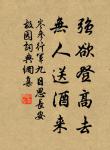 強欲登高去
無人送酒來
岑參行軍九日思長安
故園詞典網喜